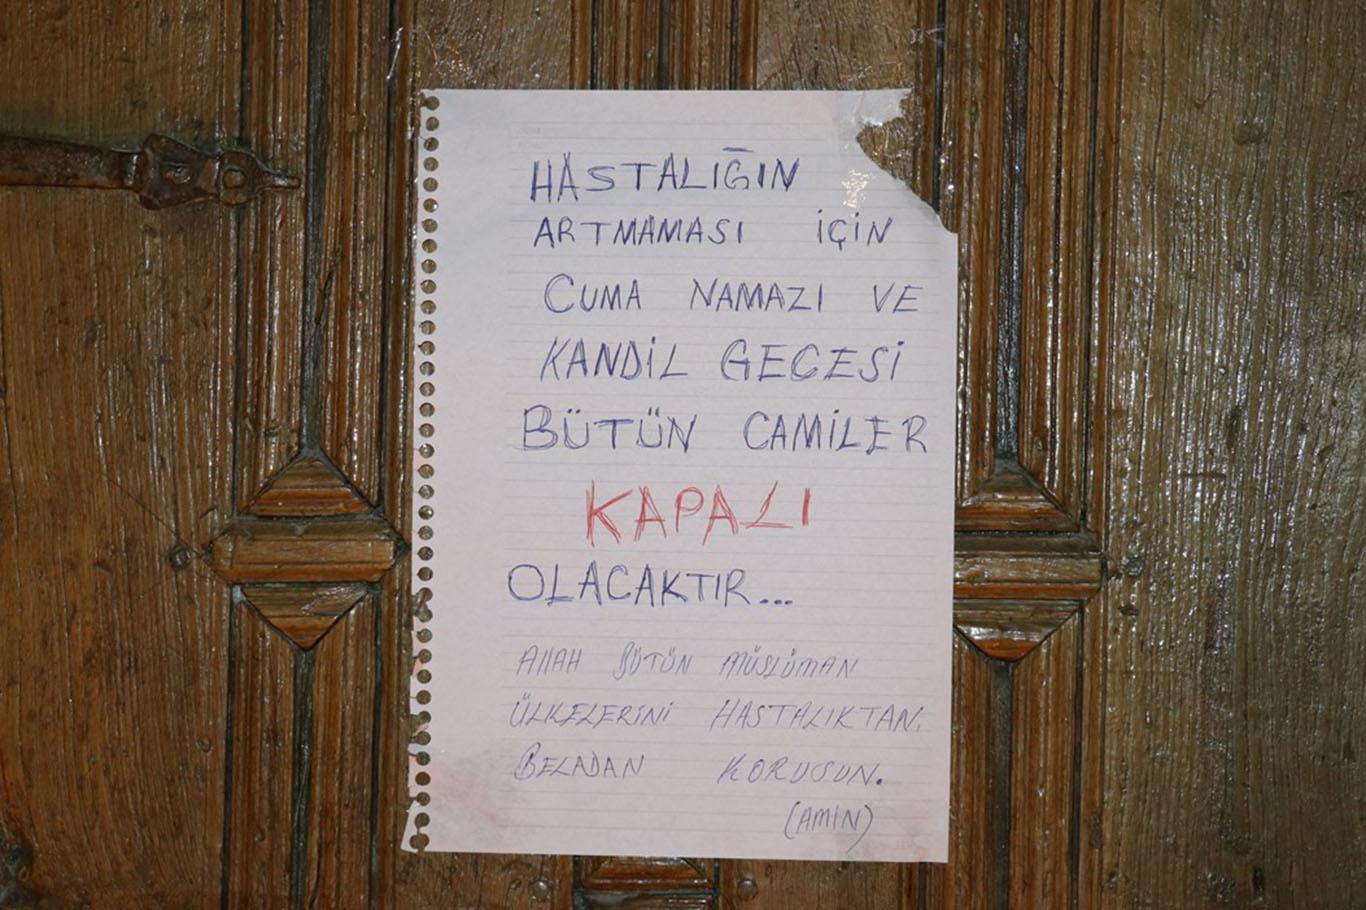 HASTALIĞIN
ARTMAMASI İÇİN
CUMA NAMAZI VE
KANDİL GECESİ
BÜTÜN CAMİLER
KAPALI
OLACAKTIR...
AllAH BÜTÜN MÜSLÜMAN
ÜLKELERİNİ HASTALIKTAN,
BELADAN KORUSUN.
(AMİN)